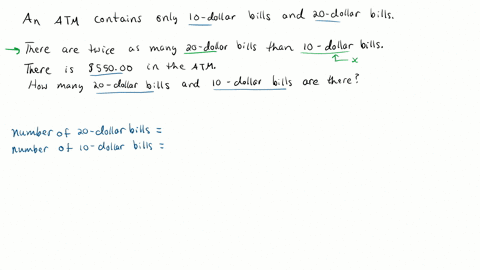 An ATM contains only 10-dollar bills and 20-dollar bills.
→ There are twice as many 20-dolor bills than 10-dollar bills.
x
There is $550.00 in the ATM.
How many 20-dollar bills and 10-dollar bills are there?
number of 20-dollar bills =
number of 10-dollar bills =